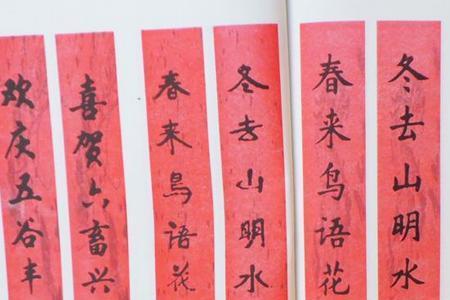 冬去山明水
春来鸟语花
冬去山明水
春来鸟语花
喜贺六畜兴
欢庆五谷丰